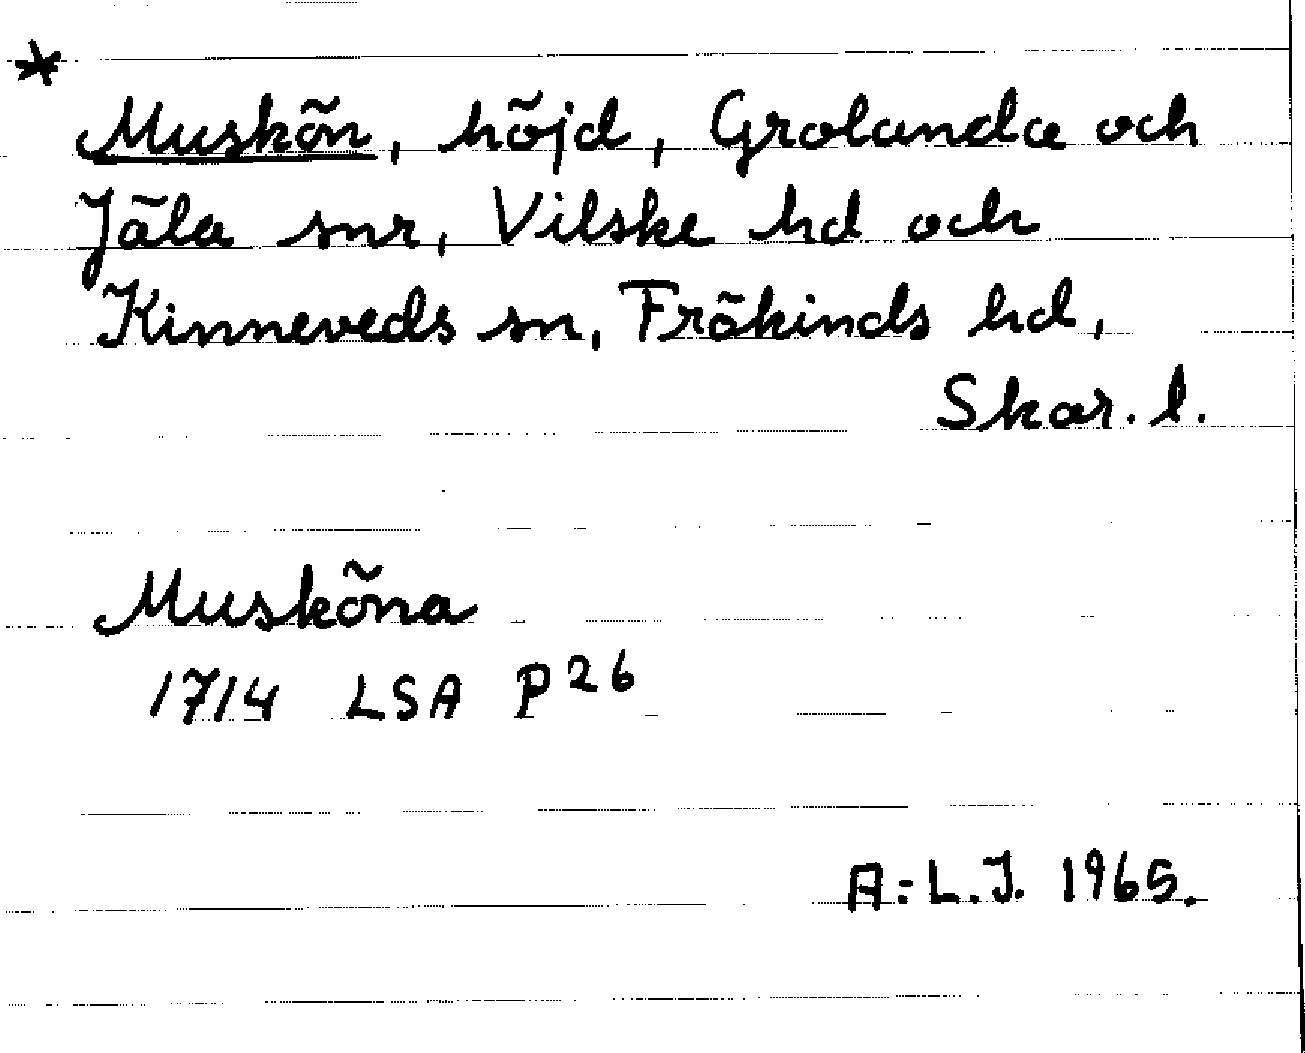 *
Muskön, höjd, Grolanda och
Jäla snr, Vilske hd och
Kinneveds sn, Frökinds hd,
Skar. l.
Musköna
1714 LSA P26
A:L.J. 1965.